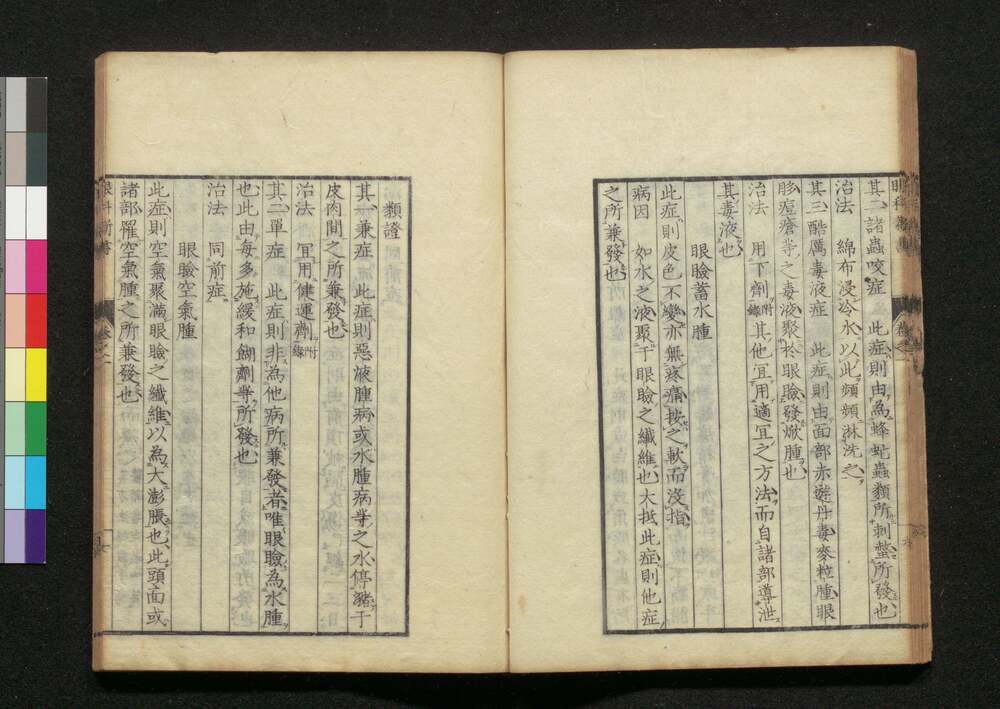 眼科新書
卷之二
其二諸蟲咬症 此症則由為蜂虻蟲類所刺螫所發也
治法 綿布浸冷水以此頻頻淋洗之
其三酷厲毒液症 此症則由面部赤遊丹毒麥粒腫眼
胗痘瘡等之毒液聚於眼瞼發焮腫也
治法 用下劑附錄其他宜用適宜之方法而自諸部導泄
其毒液也
眼瞼蓄水腫
此症則皮色不變亦無疼痛按之軟而沒指
病因 如水之液聚于眼瞼之纖維也大抵此症則他症
之所兼發也
類證
其一兼症 此症則惡液腫病或水腫病等之水停瀦于
皮肉間之所兼發也
治法 宜用健運劑附錄
其二單症 此症則非為他病所兼發者唯眼瞼為水腫
也此由每多施緩和餬劑等所發也
治法 同前症
眼瞼空氣腫
此症則空氣聚滿眼瞼之纖維以為大澎脹也此頭面或
諸部罹空氣腫之所兼發也
眼科新書
卷之二